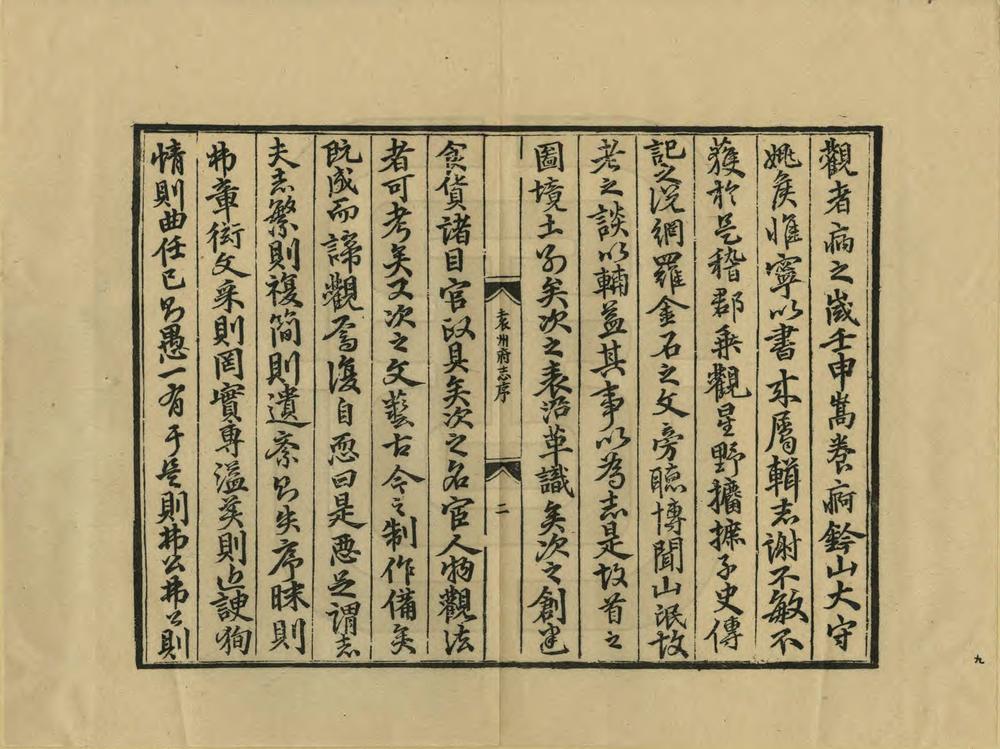 觀者病之歲壬申嵩養痾鈐山大守
姚侯惟寧以書來屬輯志謝不敏不
獲於是稽郡乘觀星野攟摭子史傳
記之說網羅金石之文旁聽博聞山氓故
老之談以輔益其事以為志是故首之
圖境土別矣次之表沿革識矣次之創建
袁州府志序
二
食貨諸目官政具矣次之名宦人物觀法
者可考矣又次之文藝古今之制作備矣
既成而諦觀焉復自恧曰是惡足謂志
夫志繁則複簡則遺紊則失序昧則
弗章衒文采則罔實專溢美則近諛狥
情則曲任己則愚一有于是則弗公弗公則
九